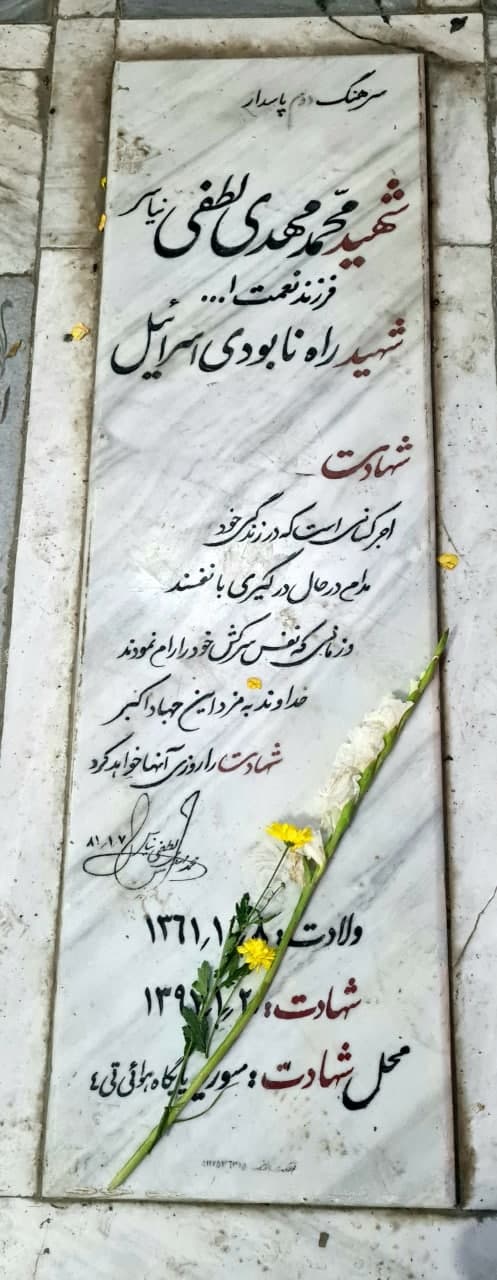 سرهنگ دوم پاسدار
شهید محمد مهدی لطفی نیاسر
فرزند نعمت ا...
شهید راه نابودی اسرائیل
شهادت
اجر کسانی است که در زندگی خود
مدام در حال درگیری با نفسند
و زمانی که نفس سرکش خود را رام نمودند
خداوند به مزد این جهاد اکبر
شهادت را روزی آنها خواهد کرد
ولادت:
شهادت:
محل شهادت: سوریه پایگاه هوائی تی ٤